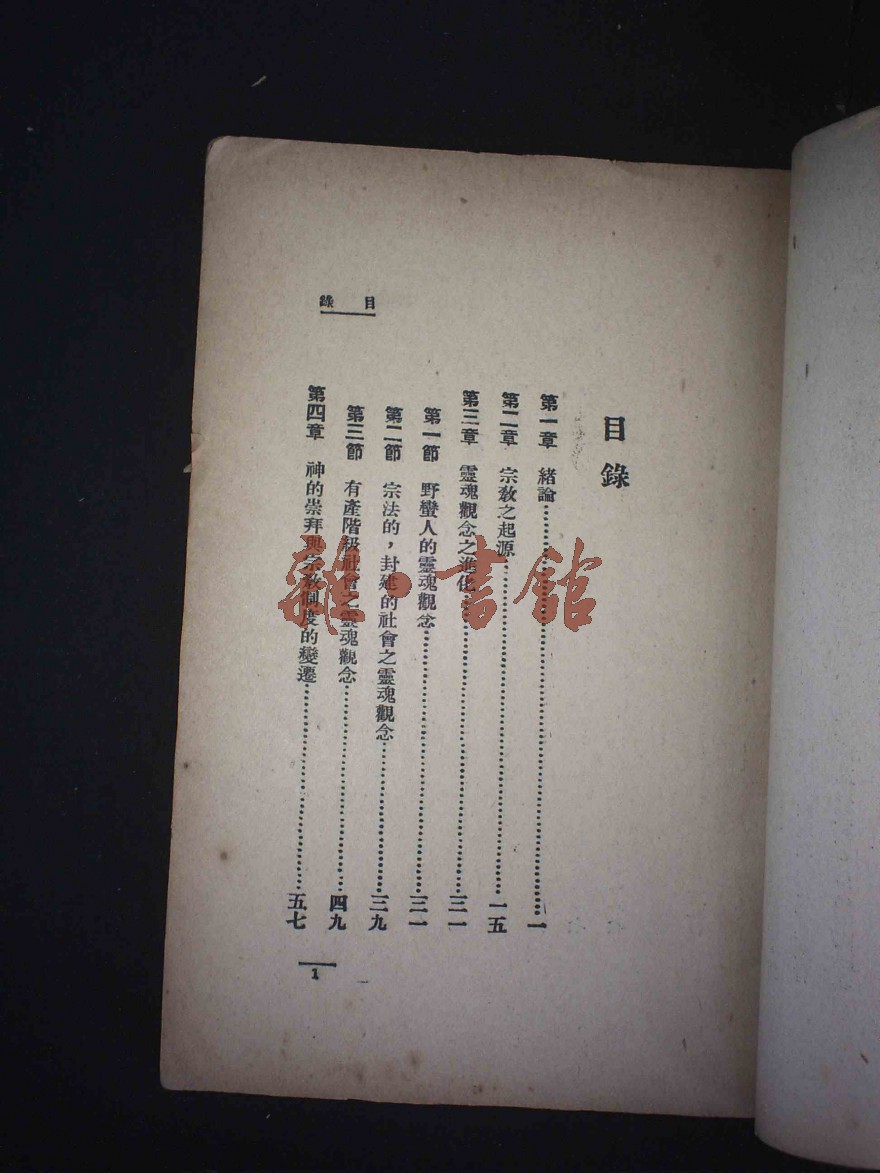 目錄
第一章 緒論………一
第二章 宗教之起源………一五
第三章 靈魂觀念之進化………三一
第一節 野蠻人的靈魂觀念………三一
第二節 宗法的，封建的社會之靈魂觀念………三九
第三節 有產階級社會之靈魂觀念………四九
第四章 神的崇拜與宗教制度的變遷………五七
目錄
1
雜·書館